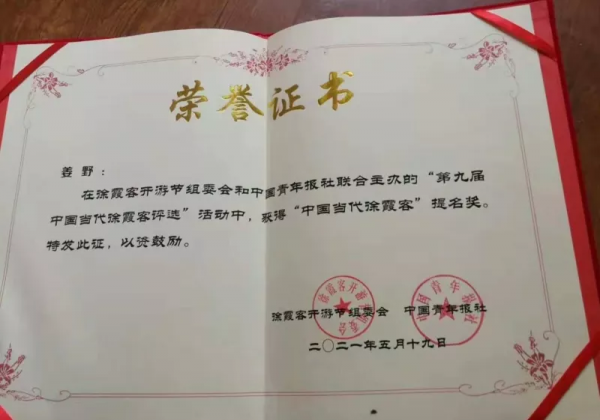 荣誉证书
姜野：
在徐霞客开游节组委会和中国青年报社联合主办的“第九届
中国当代徐霞客评选”活动中，获得“中国当代徐霞客”提名奖。
特发此证，以资鼓励。
徐霞客开游节组委会 中国青年报社
二〇二一年五月十九日